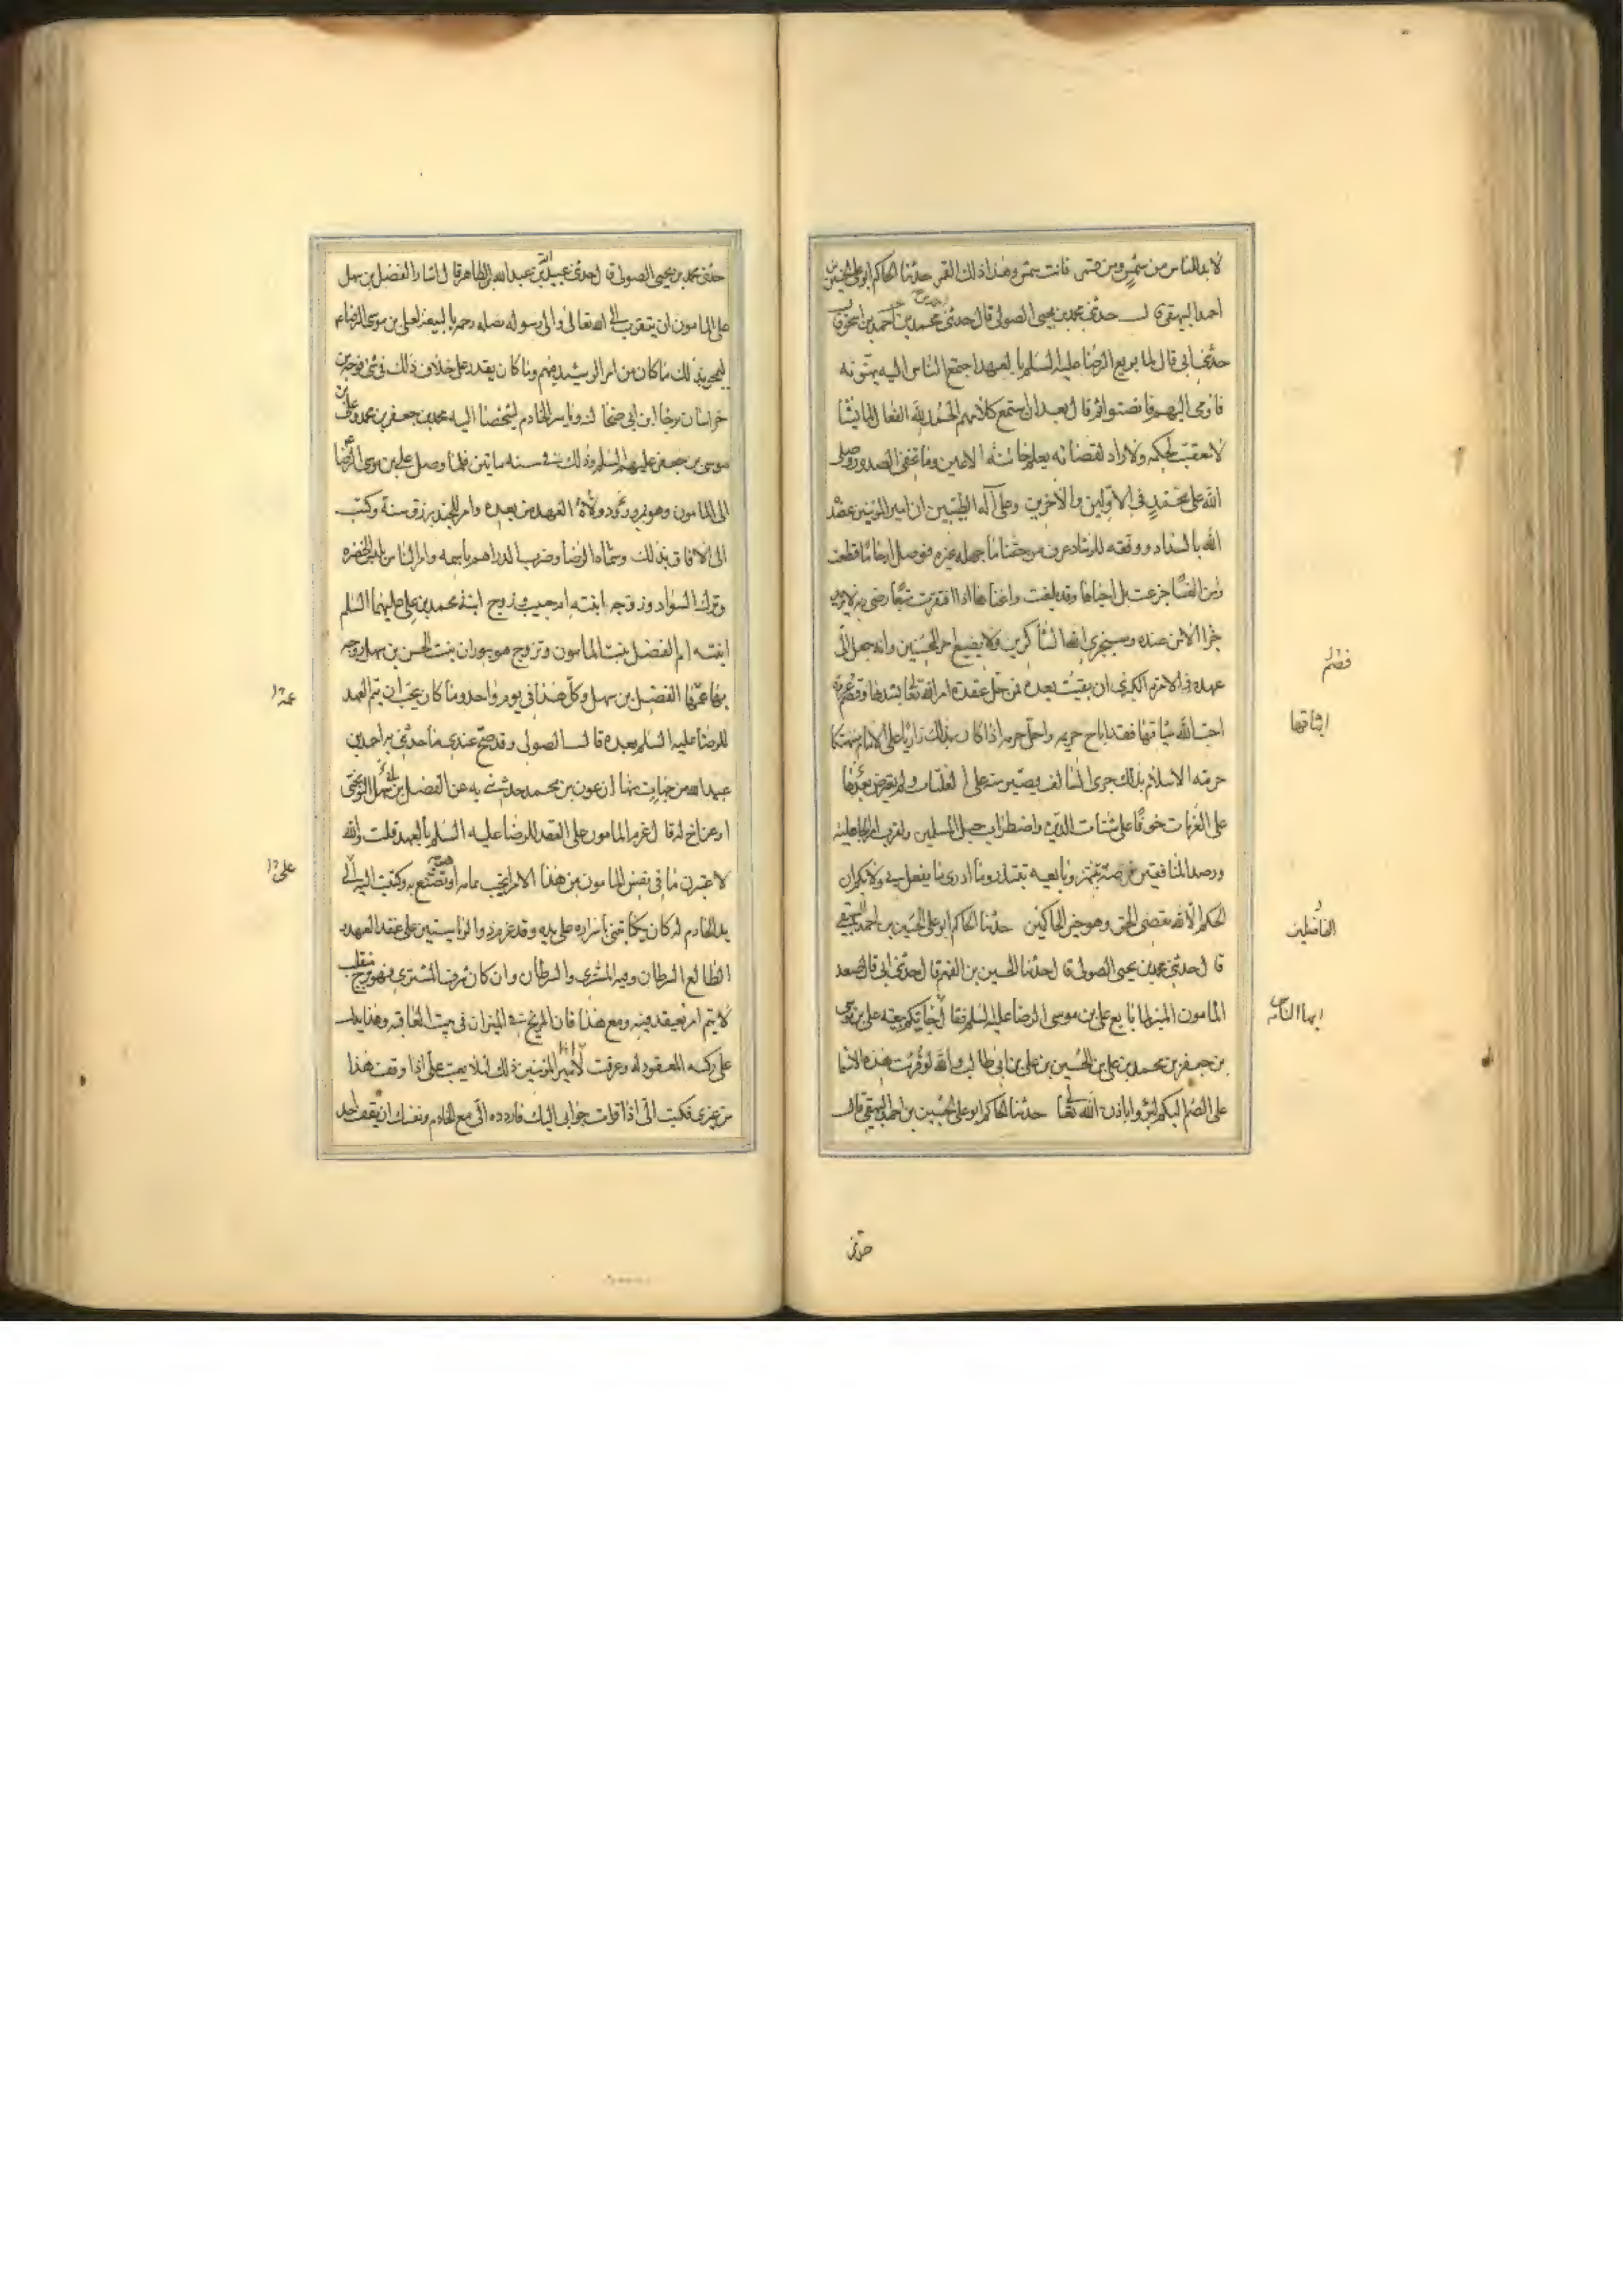 لا بد للناس من شمس ومن قمر فانت شمس وهذا ذلك القمر حدثنا الحاكم ابو علي الحسين بن
احمد البيهقي قال حدثني محمد بن يحيى الصولي قال حدثني محمد بن احمد بن اسحق قال
حدثني ابي قال لما بويع الرضا عليه السلم بالعهد اجتمع الناس اليه يهنونه
فاومى اليهم فانصتوا ثم قال بعد ان استمع كلامهم الحمد لله الفعال لما يشا
لا معقب لحكمه ولا راد لقضائه يعلم خائنة الاعين وما تخفى الصدور وصلى
الله على محمد في الاولين والاخرين وعلى آله الطيبين ان امير المومنين عضده
الله بالسداد ووفقه للرشاد عرف من حقنا ما جهله غيره فوصل ارحاما قطعت
وامن انفسا جزعت بل احياها وقد بلغت واغناها اذا افتقرت متبعا رضى ربه لا يريد
جزاا الا من عنده وسيجزي الله الشاكرين ولا يضيع اجر المحسنين وانه جعل الي
عهده والامرة الكبرى ان بقيت بعده فمن حل عقدة امر الله تعالى بشدها وقصم عروة
احب الله ميثاقها فقد اباح حريمه واحل حرمه اذا كان بذلك زاريا على الامام منتهكا
حرمة الاسلام بذلك جرى السالف فصبر منه على الفلتات ولم يعترض بعدها
على الغزمات خوفا على شتات الدين واضطراب حبل المسلمين ولقرب امر الجاهلية
ورصد المنافقين فرصة تنتهز وبايعيه تبتدر وما ادرى ما يفعل بي ولا بكم ان
الحكم الا لله يقضى الحق وهو خير الحاكمين حدثنا الحاكم ابو علي الحسين بن احمد البيهقي
قال حدثني محمد بن يحيى الصولي قال حدثنا الحسين بن الفهم قال حدثني ابي قال صعد
المامون المنبر لما بايع علي بن موسى الرضا عليه السلم فقال جاتكم بيعة علي بن موسى
بن جعفر بن محمد بن علي بن الحسين بن علي بن ابي طالب والله لو قريت هذه الاسما
على الصم البكم لبرؤا باذن الله تعالى حدثنا الحاكم ابو علي الحسين بن احمد البيهقي قال
فصم
ايثاقها
الفاصلين
ايها الناس
حدثني
حدثني محمد بن يحيى الصولي قال حدثني عبيد الله بن عبد الله بن طاهر قال اشار الفضل بن سهل
على المامون ان يتقرب الى الله تعالى والى رسوله بصلة رحمه بالبيعة لعلي بن موسى الرضا
ليمحو بذلك ما كان من امر الرشيد فيهم وما كان يقدر على خلافه ذلك في شى فوجه من
خراسان برجا ابن ابي ضحاك وياسر الخادم ليشخصا اليه محمد بن جعفر بن محمد وعلي بن
موسى بن جعفر عليهم السلم وذلك في سنة ماتين فلما وصل علي بن موسى الرضا
الى المامون وهو بمرو ولاه العهد من بعده وامر للجند برزق سنة وكتب
الى الافاق بذلك وسماه الرضا وضرب الدراهم باسمه وامر الناس بلبس الخضره
وترك السواد وزوجه ابنته ام حبيب وزوج ابنه محمد بن علي عليهما السلم
ابنته ام الفضل بنت المامون وتزوج هو ببوران بنت الحسن بن سهل زوجه
بها عمها الفضل بن سهل وكل هذا في يوم واحد وما كان يحب ان يتم العهد
للرضا عليه السلم بعده قال الصولي وقد صح عندي ما حدثني به احمد بن
عبيد الله من جهات منها ان عون بن محمد حدثني به عن الفضل بن سهل النوبختي
او عن اخ له قال لما عزم المامون على العقد للرضا عليه السلم بالعهد قلت والله
لاعتبرن ما في نفس المامون من هذا الامر ايحب تمامه او تصنع به وكتبت اليه على
يد الخادم له كان يكاتبني باسراره على يديه وقد عزم ذو الرياستين على عقد العهد
الطالع السرطان وفيه المشترى والسرطان وان كان شرف المشترى فهو برج منقلب
لا يتم امر يعقد فيه ومع هذا فان المريخ في الميزان في بيت العاقبة وهذا يدل
على نكبة المعقود له وعرفت امير المومنين ذلك لئلا يعتب علي اذا وقف هذا
من غيري فكتب الي اذا قرات جوابي اليك فاردده الي مع الخادم ونفسك ان يقف احد